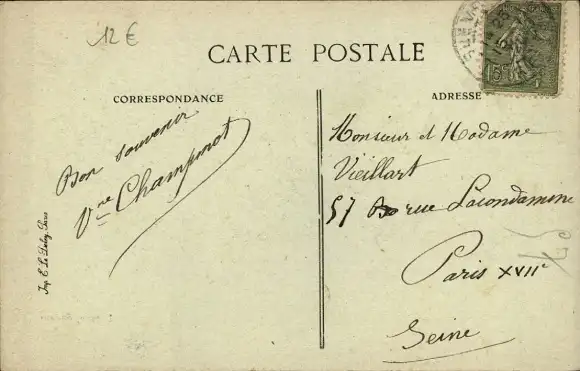 12 €
CARTE POSTALE
CORRESPONDANCE
ADRESSE
Bon souvenir
Vne Champmot
Monsieur et Madame
Vieillart
57 rue Lacondamine
Paris XVIIe
Seine
15c
Imp. E. Le Deley, Paris